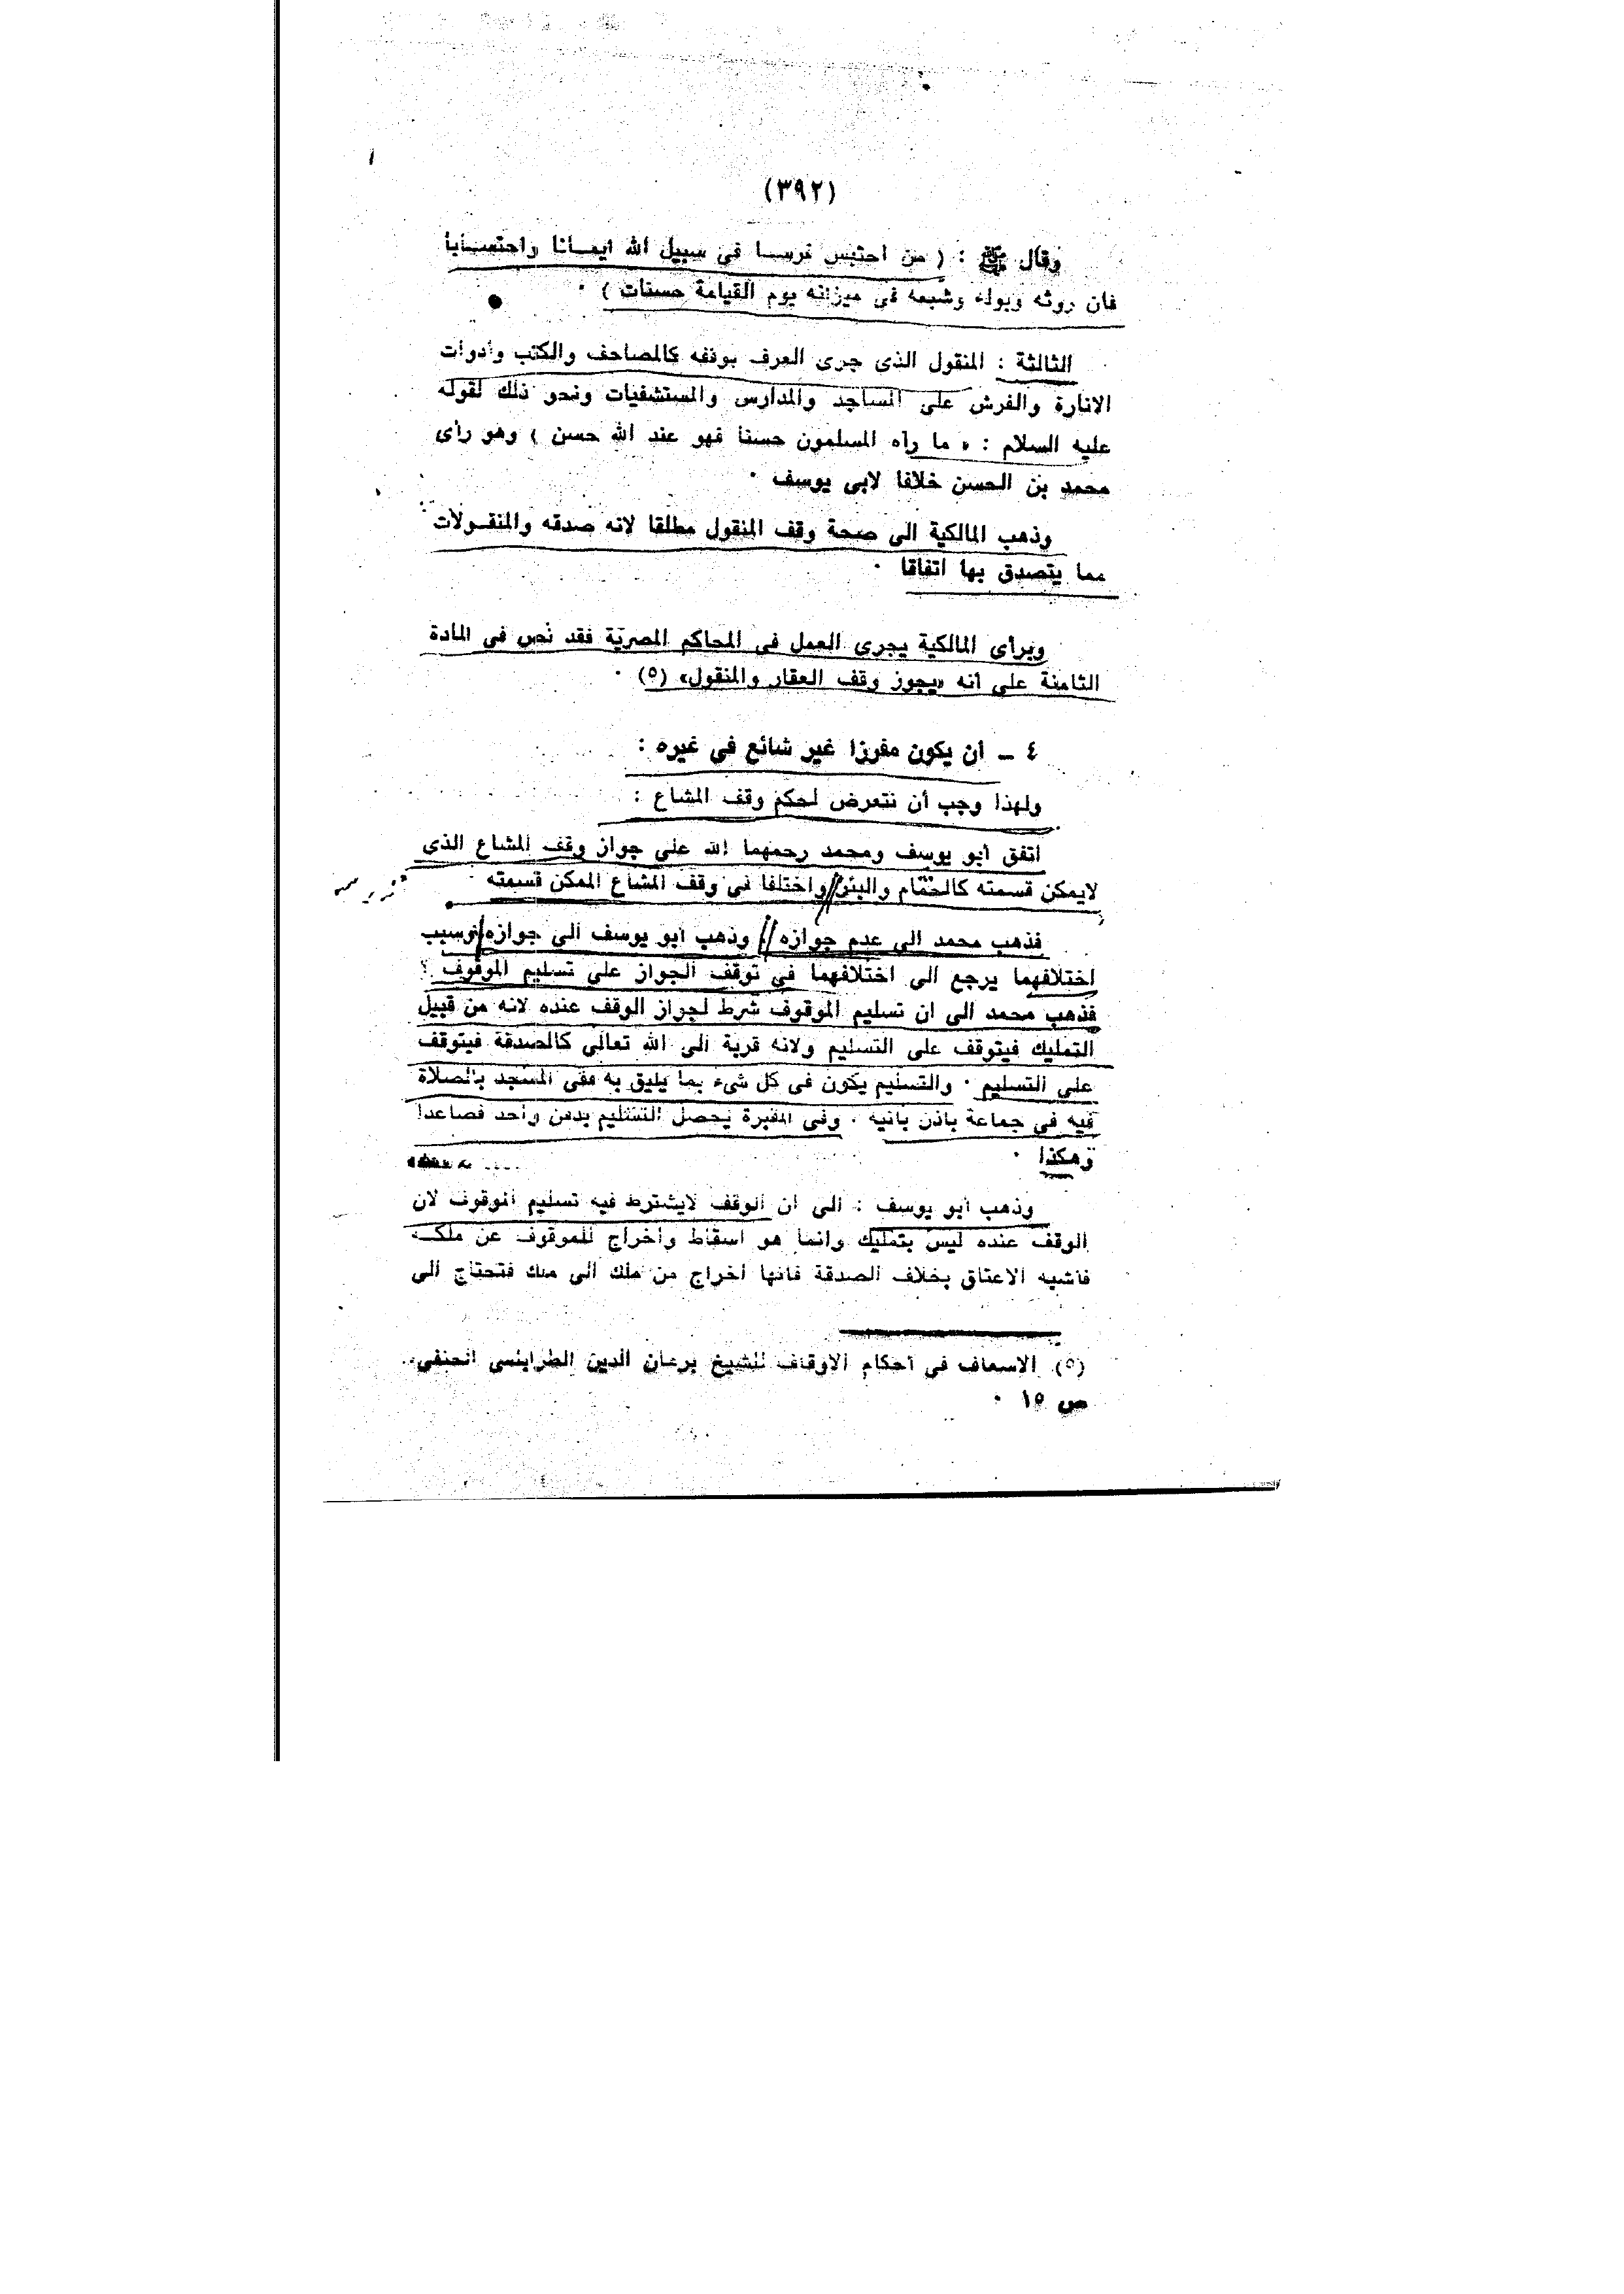 (٣٩٢)
وقال ﷺ : ( من احتبس فرسا فى سبيل الله ايمــانا واحتســابا
فان روثه وبوله وشبعه فى ميزانه يوم القيامة حسنات ) ٠
الثالثة : المنقول الذى جرى العرف بوقفه كالمصاحف والكتب وأدوات
الانارة والفرش على المساجد والمدارس والمستشفيات ونحو ذلك لقوله
عليه السلام : « ما رآه المسلمون حسنا فهو عند الله حسن ) وهو رأى
محمد بن الحسن خلافا لابى يوسف ٠
وذهب المالكية الى صحة وقف المنقول مطلقا لانه صدقه والمنقــولات
مما يتصدق بها اتفاقا ٠
وبرأى المالكية يجرى العمل فى المحاكم المصرية فقد نص فى المادة
الثامنة على أنه «يجوز وقف العقار والمنقول» (٥) ٠
٤ ــ أن يكون مفرزا غير شائع فى غيره :
ولهذا وجب أن نتعرض لحكم وقف المشاع :
اتفق أبو يوسف ومحمد رحمهما الله على جواز وقف المشاع الذى
لايمكن قسمته كالحمام والبئر واختلفا فى وقف المشاع الممكن قسمته
فذهب محمد الى عدم جوازه وذهب أبو يوسف الى جوازه وسبب
اختلافهما يرجع الى اختلافهما فى توقف الجواز على تسليم الموقوف ؟
فذهب محمد الى ان تسليم الموقوف شرط لجواز الوقف عنده لانه من قبيل
التمليك فيتوقف على التسليم ولانه قربة الى الله تعالى كالصدقة فيتوقف
على التسليم ٠ والتسليم يكون فى كل شىء بما يليق به ففى المسجد بالصلاة
فيه فى جماعة باذن بانيه ٠ وفى المقبرة يحصل التسليم بدفن واحد فصاعدا
وهكذا ٠
وذهب أبو يوسف : الى ان الوقف لايشترط فيه تسليم الموقوف لان
الوقف عنده ليس بتمليك وانما هو اسقاط واخراج للموقوف عن ملكــه
فأشبه الاعتاق بخلاف الصدقة فانها اخراج من ملك الى ملك فتحتاج الى
(٥) الاسعاف فى أحكام الاوقاف للشيخ برهان الدين الطرابلسى الحنفى
ص ١٥ ٠